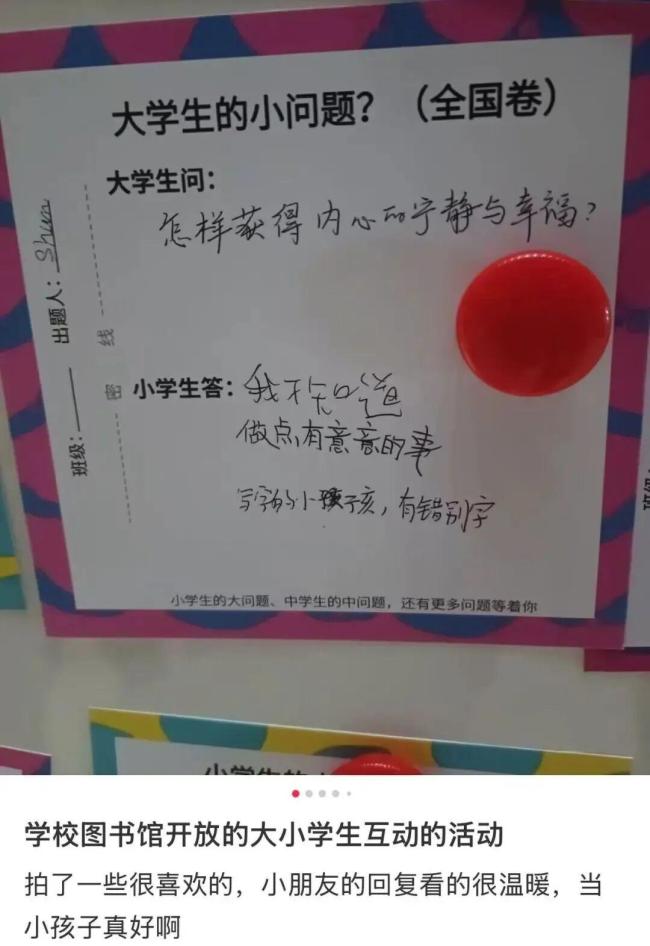 大学生的小问题？（全国卷）
大学生问：
怎样获得内心的宁静与幸福？
出题人：Shun
班级：
密 线
小学生答：我不知道
做点有意意的事
写字的小孩子孩，有错别字
小学生的大问题、中学生的中问题，还有更多问题等着你
学校图书馆开放的大小学生互动的活动
拍了一些很喜欢的，小朋友的回复看的很温暖，当
小孩子真好啊